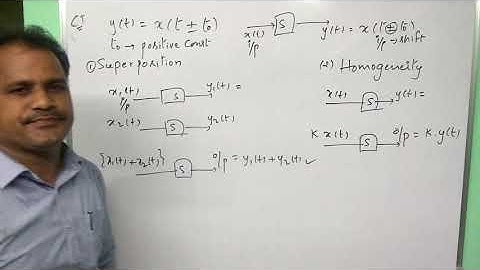 y(t) = x(t ± t₀)
t₀ → positive Const
x(t)
i/p
S
y(t) = x(t ± t₀)
i/p → shift
① Superposition
x₁(t)
i/p
S
y₁(t) =
x₂(t)
S
y₂(t)
{x₁(t) + x₂(t)}
S
o/p = y₁(t) + y₂(t) ✓
(2) Homogeneity
x(t)
S
y(t) =
K. x(t)
S
o/p = K. y(t)